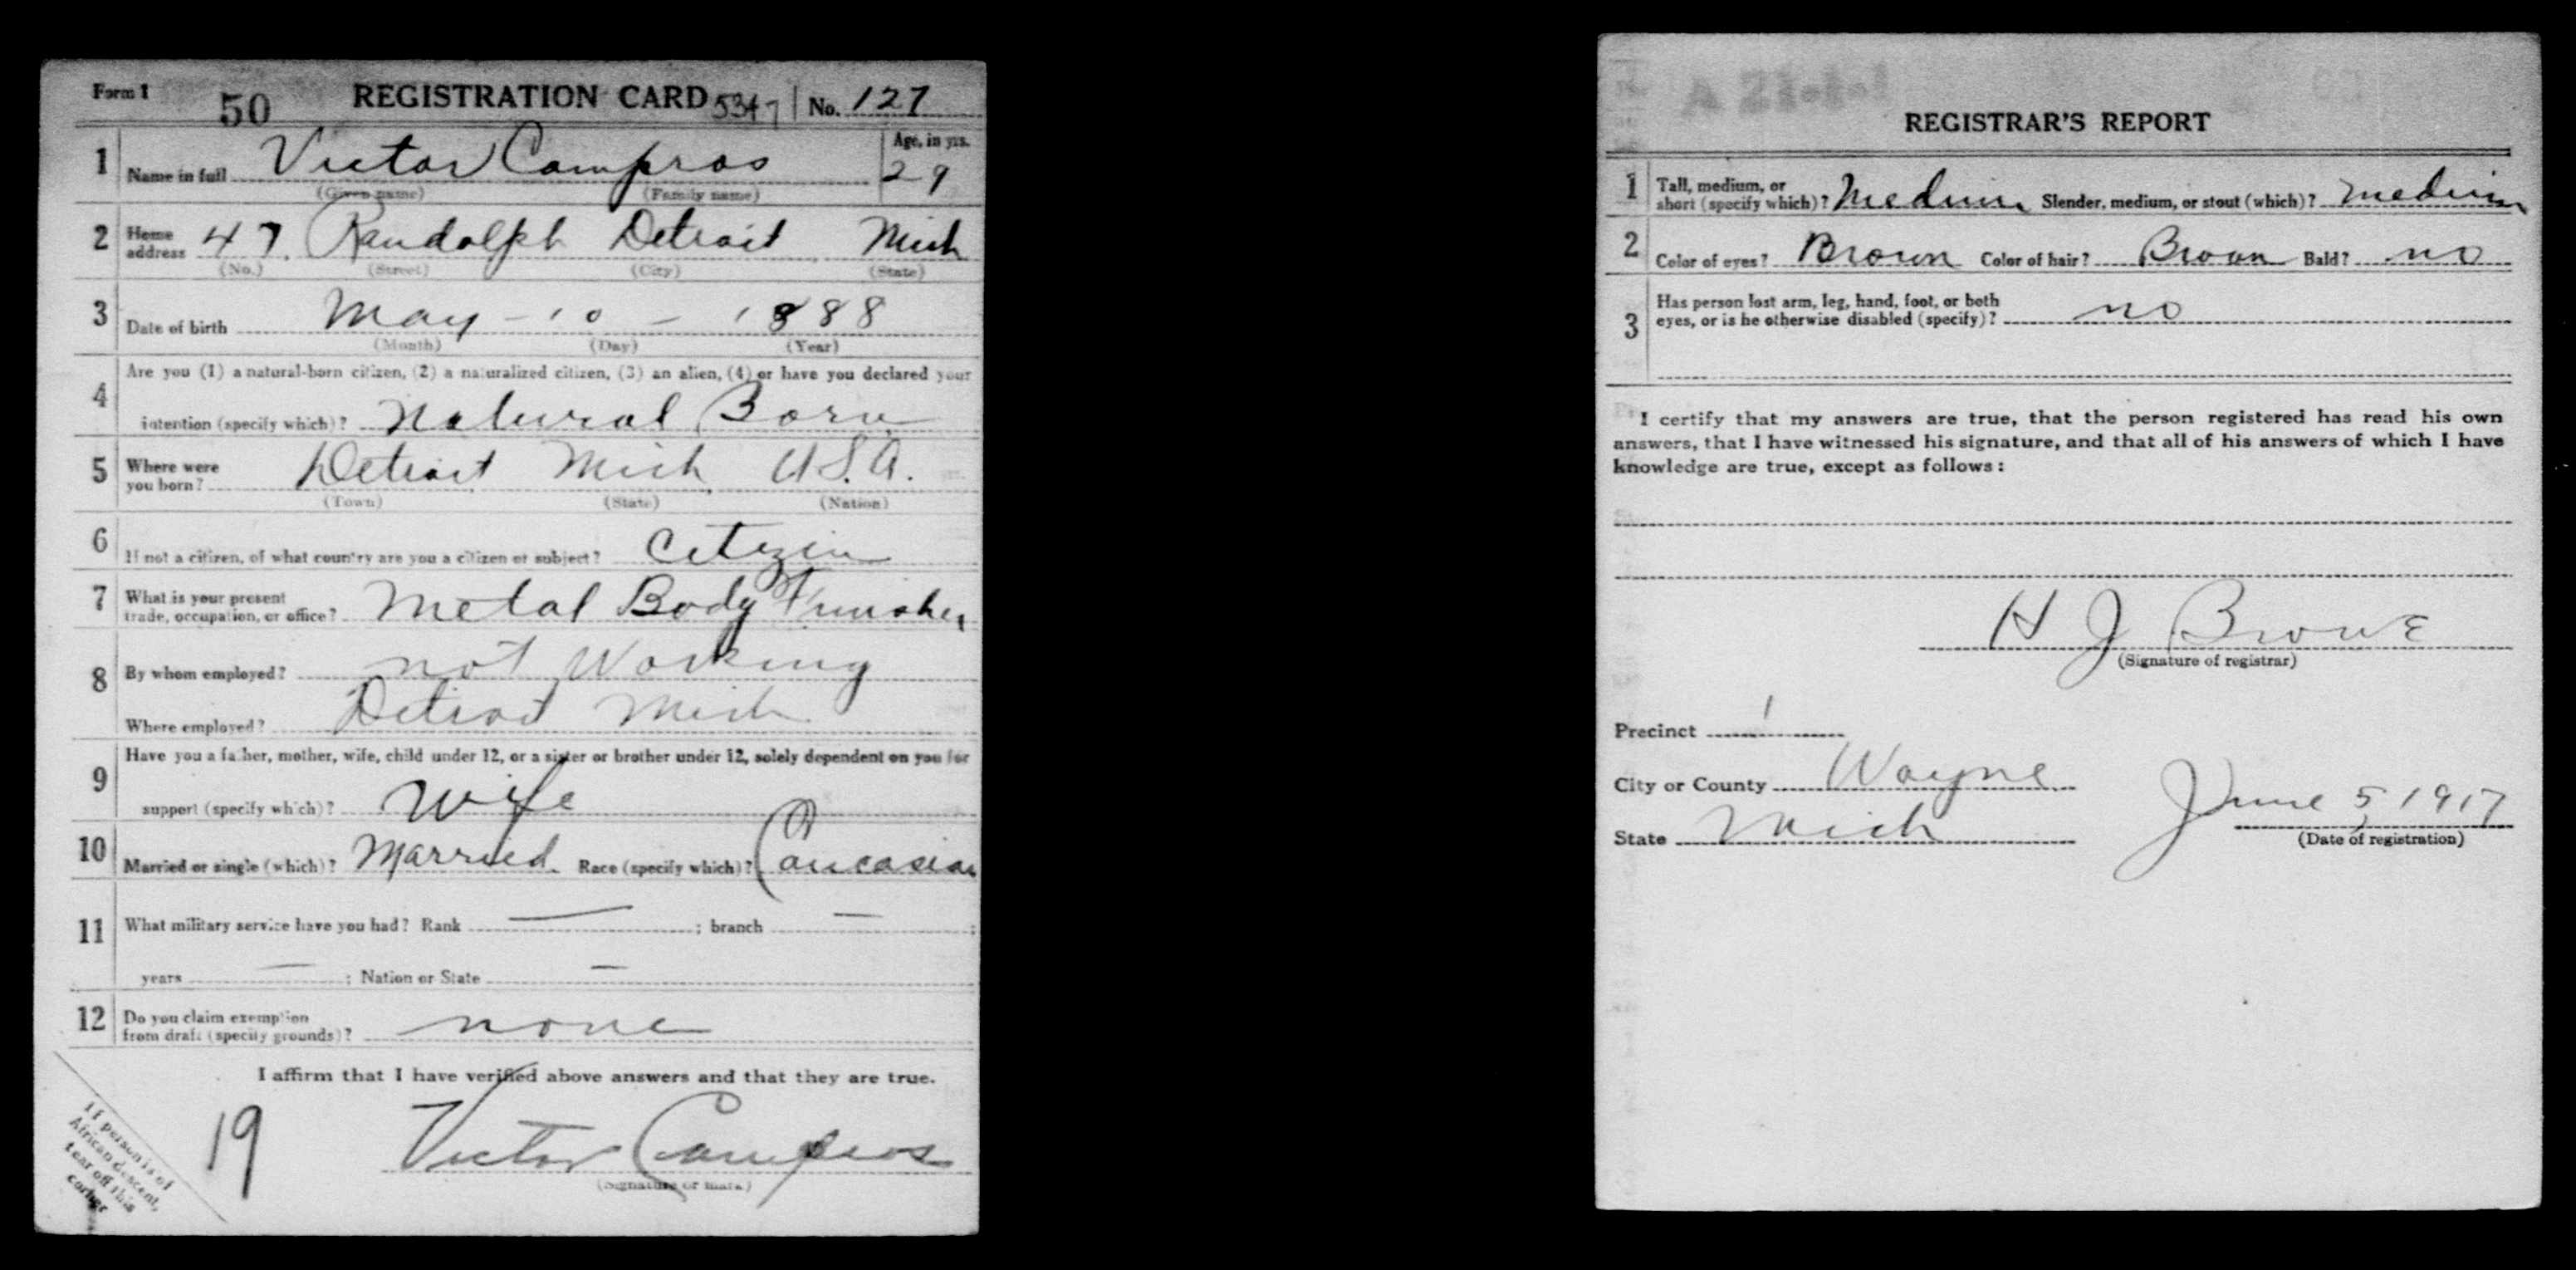 Form 1 50 REGISTRATION CARD 5347 No. 127
1 Name in full Victor Campros Age, in yrs. 29
(Given name) (Family name)
2 Home address 47 Randolph Detroit Mich
(No.) (Street) (City) (State)
3 Date of birth May - 10 - 1888
(Month) (Day) (Year)
4 Are you (1) a natural-born citizen, (2) a naturalized citizen, (3) an alien, (4) or have you declared your
intention (specify which)? Natural Born
5 Where were you born? Detroit Mich U.S.A.
(Town) (State) (Nation)
6 If not a citizen, of what country are you a citizen or subject? Citizen
7 What is your present trade, occupation, or office? Metal Body Finisher
8 By whom employed? not Working
Where employed? Detroit Mich
9 Have you a father, mother, wife, child under 12, or a sister or brother under 12, solely dependent on you for
support (specify which)? Wife
10 Married or single (which)? Married Race (specify which)? Caucasian
11 What military service have you had? Rank — ; branch — ;
years — ; Nation or State —
12 Do you claim exemption from draft (specify grounds)? none
I affirm that I have verified above answers and that they are true.
19 Victor Campros
(Signature or mark)
If person is of
African descent,
tear off this
corner
REGISTRAR'S REPORT
1 Tall, medium, or short (specify which)? Medium Slender, medium, or stout (which)? medium
2 Color of eyes? Brown Color of hair? Brown Bald? no
3 Has person lost arm, leg, hand, foot, or both
eyes, or is he otherwise disabled (specify)? no
I certify that my answers are true, that the person registered has read his own
answers, that I have witnessed his signature, and that all of his answers of which I have
knowledge are true, except as follows:
H J Browe
(Signature of registrar)
Precinct 1
City or County Wayne
State Mich June 5, 1917
(Date of registration)